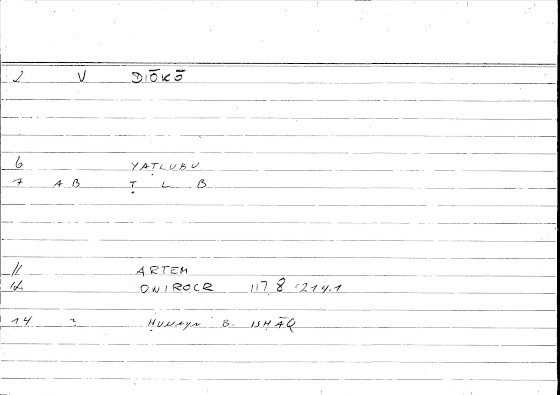 2 V DIŌKŌ
6 YAṬLUBU
7 AB Ṭ L B
11 ARTEM
12 ONIROCR 117.8 = 214.1
14 ḤUNAYN B. ISḤĀQ